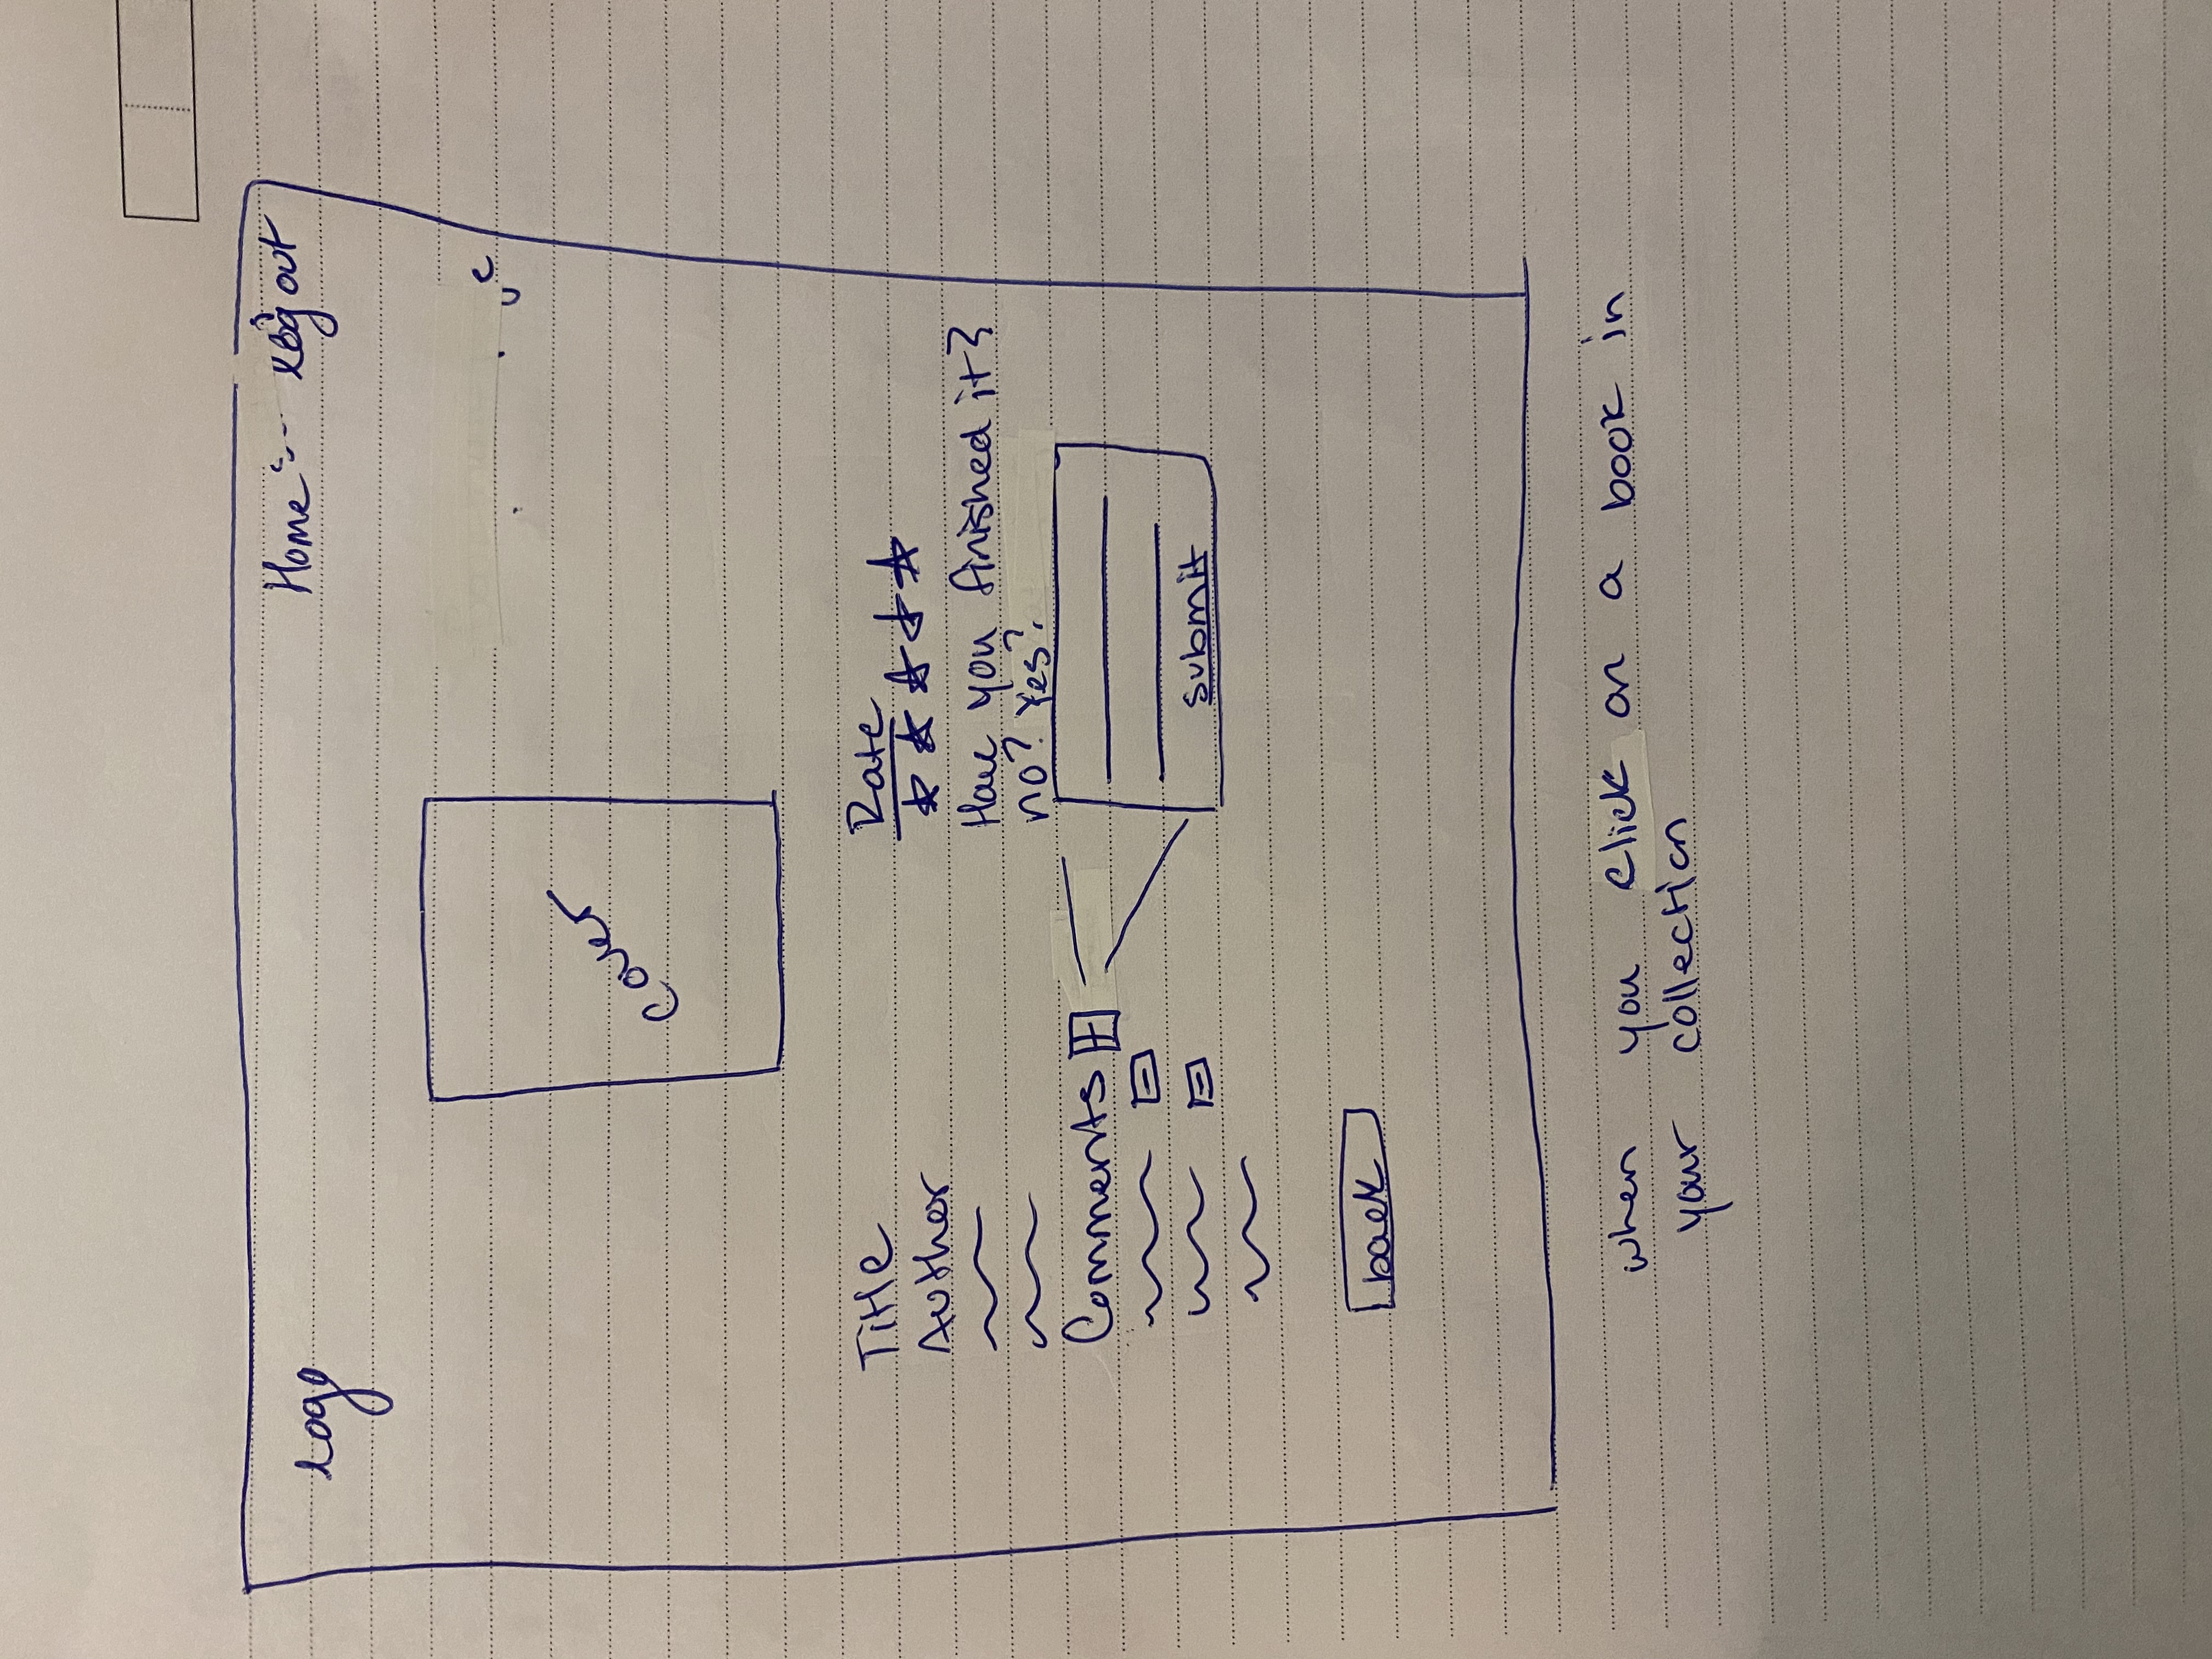 logo
Home --- log out
cover
Title
Author
Rate
Have you finished it?
no? Yes?
Comments +
-
-
submit
back
when you click on a book in
your collection